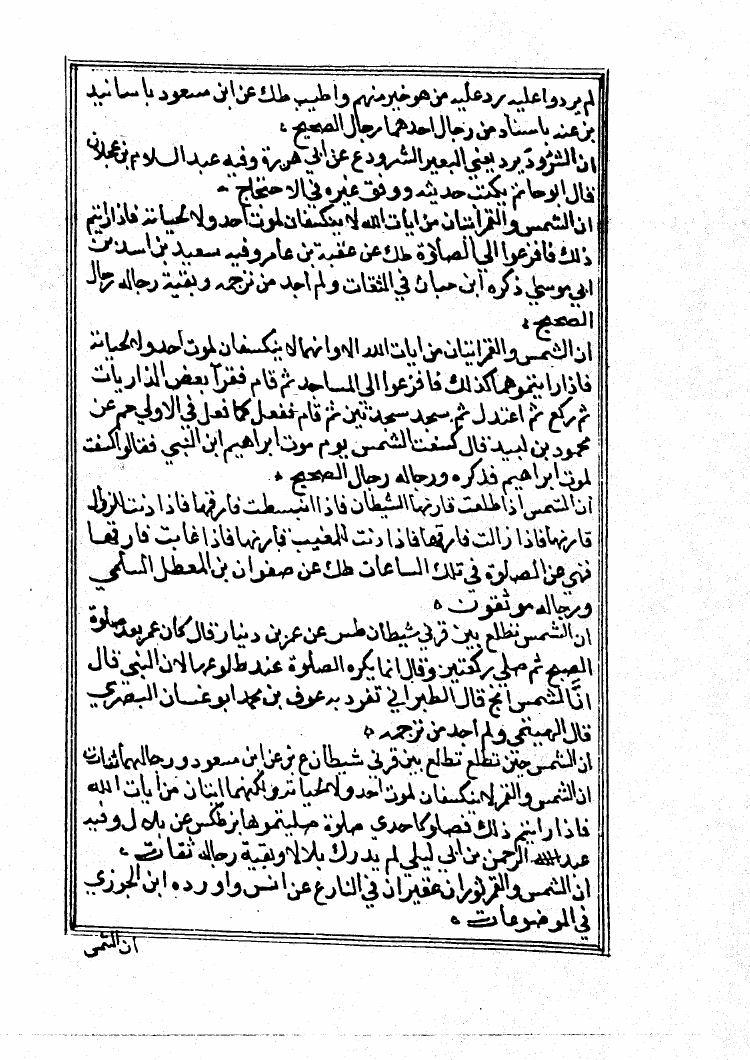 لم يردوا عليه رد عليه من هو خير منهم واطيب طك عن ابن مسعود باسانيد
بز عنه باسناد من رجال احدهما رجال الصحيح
ان الشرود يرد يعني البعير الشرود ع عن ابي هريرة وفيه عبد السلام بن عجلان
قال ابو حاتم يكتب حديثه ووثق غيره في الاحتجاج
ان الشمس والقمر ايتان من ايات الله لا ينكسفان لموت احد ولا لحياته فاذا رايتم
ذلك فافزعوا الي الصلاة طك عن عقبة بن عامر وفيه سعيد بن اسد بن
ابي موسي ذكره ابن حبان في الثقات ولم اجد من ترجمه وبقية رجاله رجال
الصحيح
ان الشمس والقمر ايتان من ايات الله الا وانهما لا ينكسفان لموت احد ولا لحياته
فاذا رايتموهما كذلك فافزعوا الى المساجد ثم قام فقرآ بعض الذاريات
ثم ركع ثم اعتدل ثم سجد سجدتين ثم قام ففعل كما فعل في الاولي حم عن
محمود بن لبيد قال كسفت الشمس يوم موت ابراهيم ابن النبي فقالوا كسفت
لموت ابراهيم فذكره ورجاله رجال الصحيح
ان الشمس اذا طلعت قارنها الشيطان فاذا انبسطت فارقها فاذا دنت للزوال
قارنها فاذا زالت فارقها فاذا دنت للمغيب قارنها فاذا غابت فارقها
فنهي عن الصلوة في تلك الساعات طك عن صفوان بن المعطل السلمي
ورجاله موثقون
ان الشمس تطلع بين قرني شيطان طس عن عمر بن دينار قال كان عمر بعد صلوة
الصبح ثم صلي ركعتين وقال انما يكره الصلوة عند طلوعها لان النبي قال
ان الشمس الخ قال الطبراني تفرد به عوف بن محمد ابو غسان البصري
قال الهيتمي ولم اجد من ترجمه
ان الشمس حين تطلع تطلع بين قرني شيطان ع بز عن ابن مسعود ورجالهما ثقات
ان الشمس والقمر لا ينكسفان لموت احد ولا لحياته ولكنهما ايتان من ايات الله
فاذا رايتم ذلك فصلوا كاحدي صلوة صليتموها بز طكس عن بلال وفيه
عبد الرحمن بن ابي ليلي لم يدرك بلالا وبقية رجاله ثقات
ان الشمس والقمر ثوران عقيران في النار ع عن انس واورده ابن الجوزي
في الموضوعات
ان الشمس